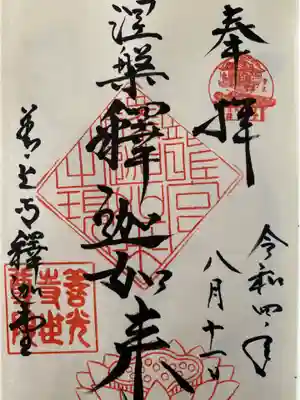 奉拝
令和四年
八月十一日
涅槃釋迦如来
善光寺釋迦堂
善光
寺世
尊院